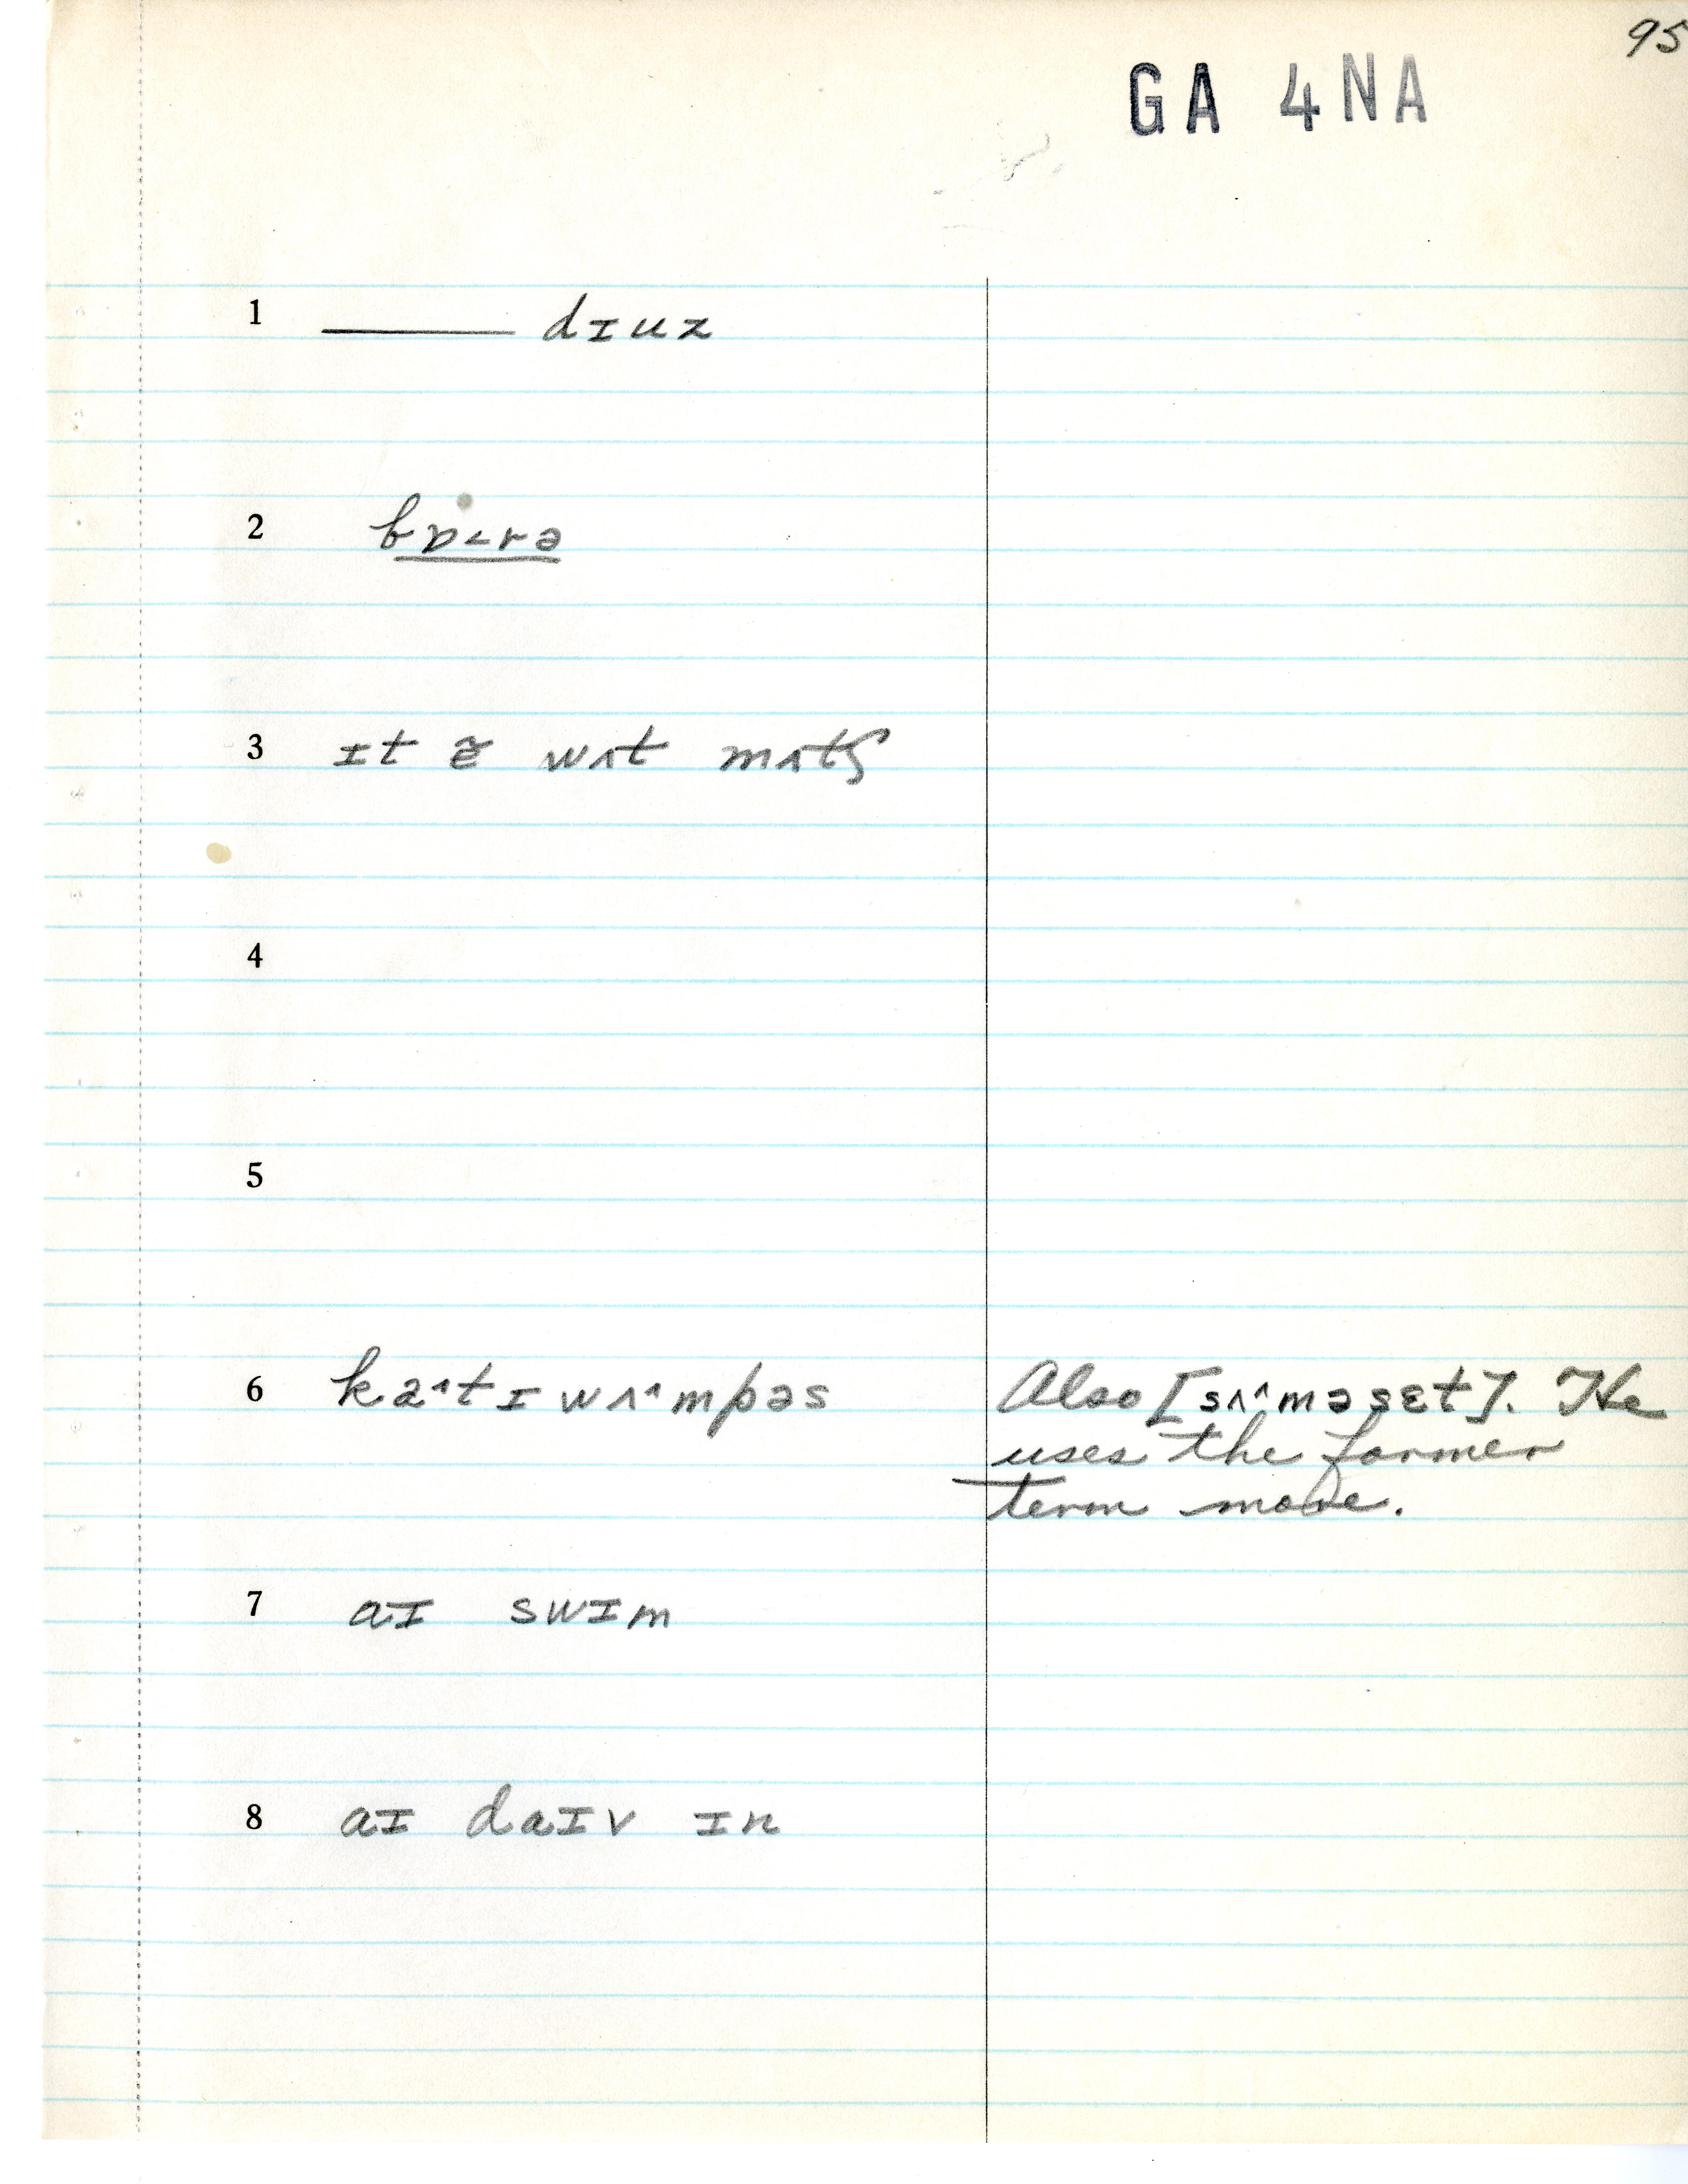 95
GA 4NA
1 ______ dɪuz
2 bɒ<rə
3 ɪt æ̃ wʌt mʌtʃ
4
5
6 ka^tɪwʌ^mpəs Also [sʌ^məsɛt]. He
uses the former
term more.
7 aɪ swɪm
8 aɪ daɪv ɪn